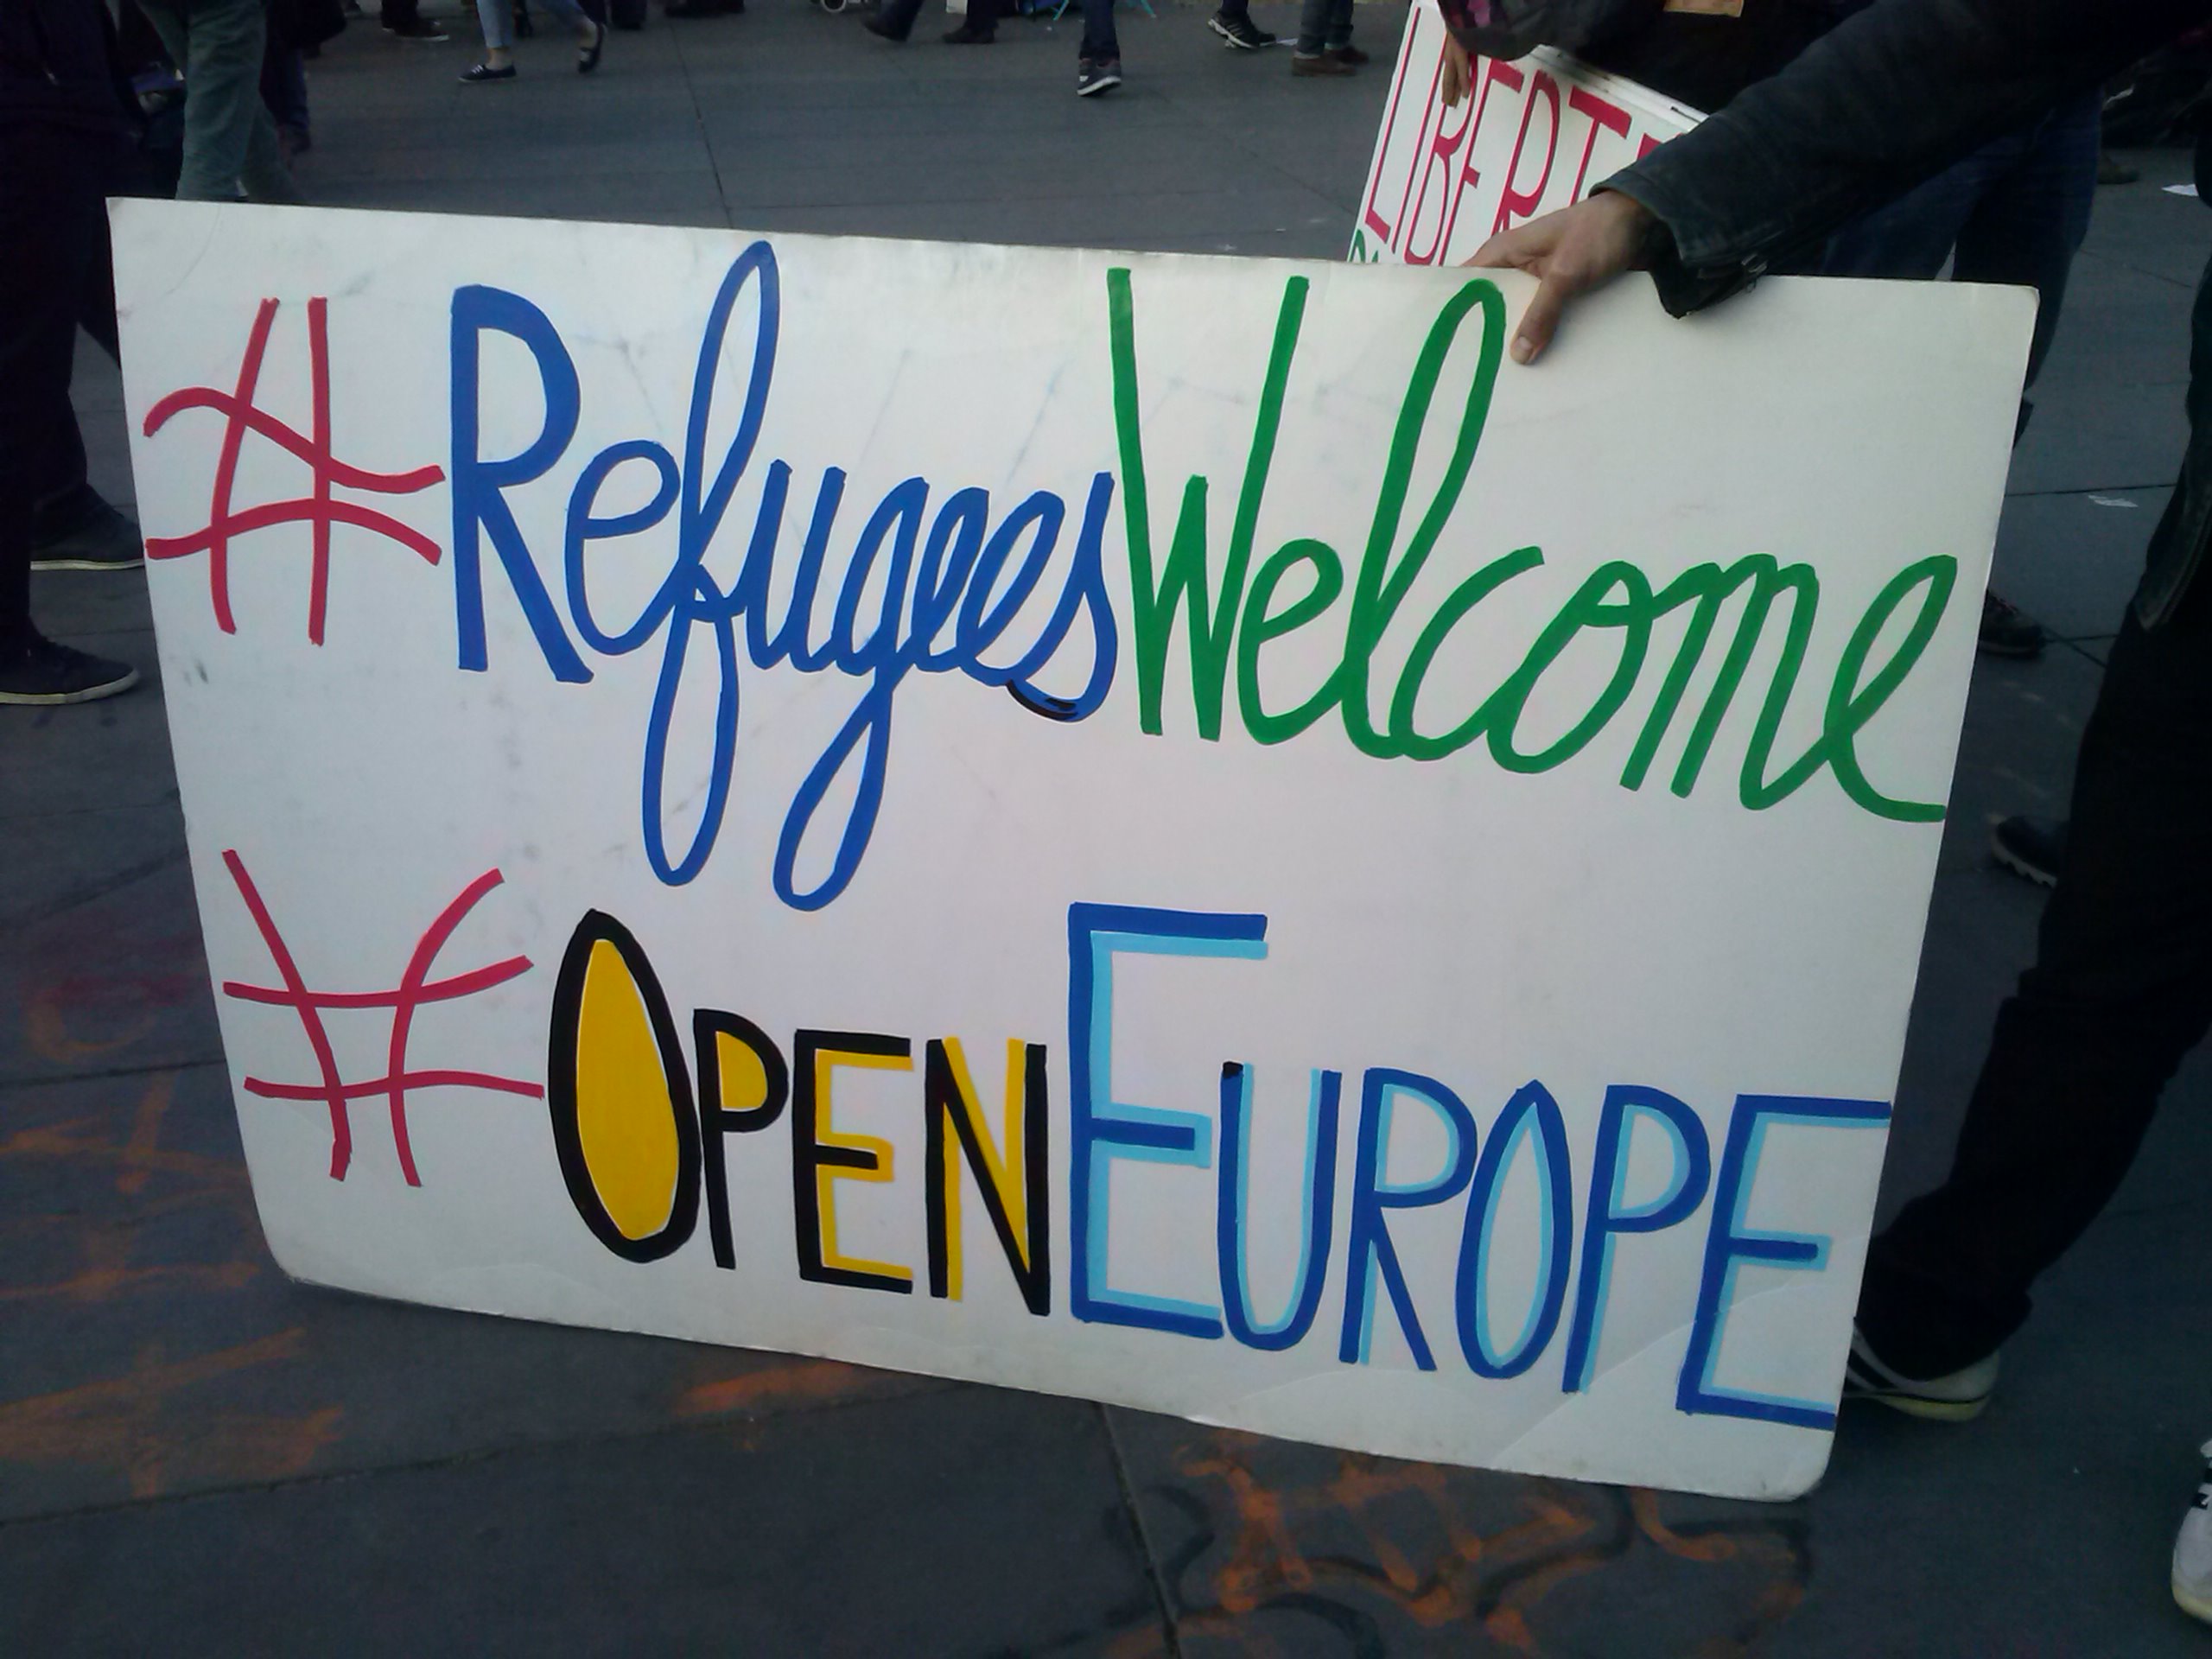 #RefugeesWelcome
#OPENEUROPE